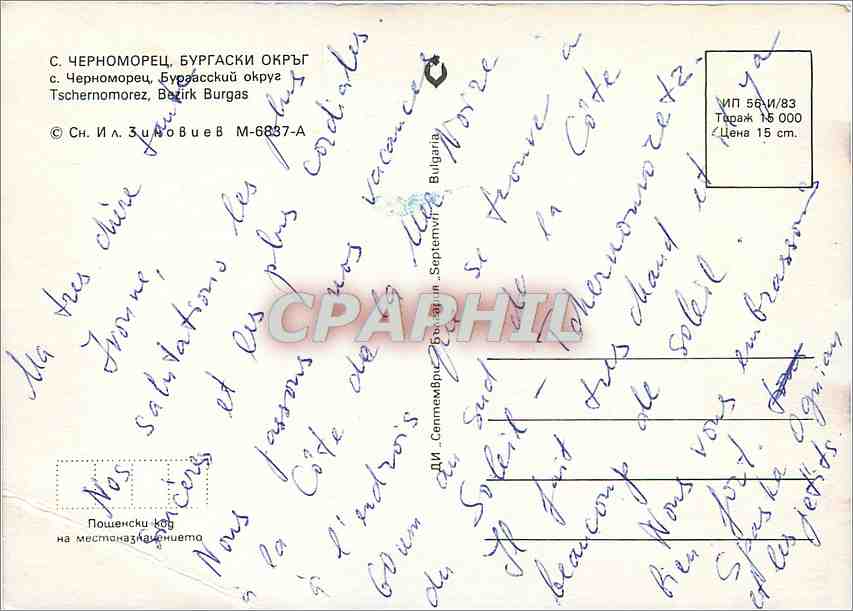 С. ЧЕРНОМОРЕЦ, БУРГАСКИ ОКРЪГ
с. Черноморец, Бургасский округ
Tschernomorez, Bezirk Burgas
© Сн. Ил. Зиновиев М-6837-А
ИП 56-И/83
Тираж 15 000
Цена 15 ст.
ДИ „Септември" България „Septemvri" Bulgaria
Пощенски код
на местоназначението
CPAPHIL
Ma tres chère tante
Ivonne,
Nos salutations les plus
sincères et les plus cordiales
Nous passons nos vacances
à la Côte de la Mer Noire
à l'endrois qui se trouve à
60 um au sud de la Côte
du Soleil – Tchernomoretz.
Il fait tres chaud et il y a
beaucoup de soleil.
Nous vous embrassons
bien fort.
Spaska Ognian
et les petits.